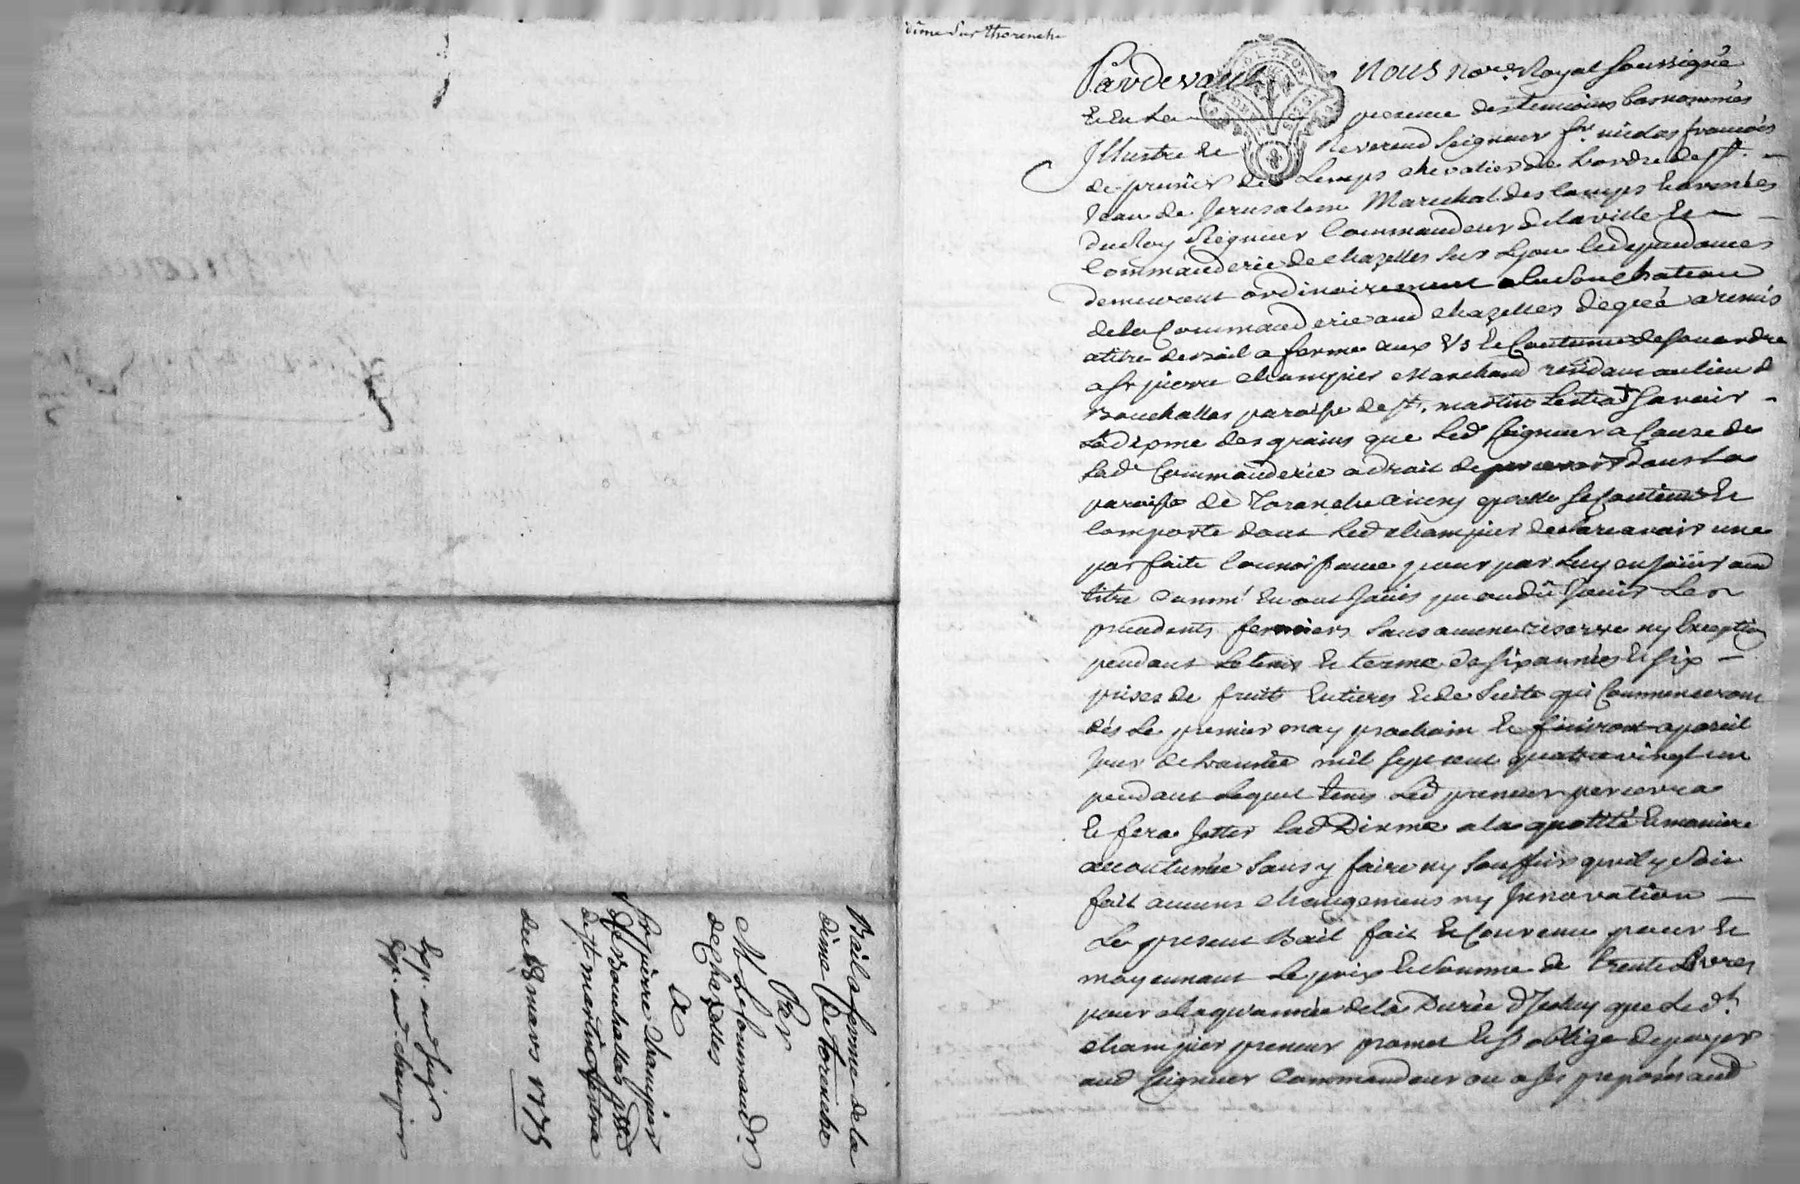 dime sur thorenche
Pardevant nous nore. Royal soussigné
et en la presence des temoins bas nommés
Illustre et Reverend Seigneur fre. nicolas francois
de prunier de Lemps chevalier de Lordre de st.
Jean de Jerusalem Marechal des camps et armées
du Roy Seigneur Commandeur de la ville et
Commanderie de chazelles sur Lyon et dependances
demeurant ordinairement en son chateau
de la Commanderie aud chazelles de gré a remis
a titre de bail a ferme aux us et Coutumes
a sr pierre champier Marchand residant au lieu de
Bouchallas paroisse de st. martin Lestra savoir
La dixme des grains que led Seigneur a Cause de
lad Commanderie a droit de percevoir dans la
paroisse de Toranche ainsy quelle se Contient et
Comporte dont led champier declare avoir une
parfaite Connoissance pour par luy en jouir aud
titre Comme en ont jouis pu ou dû jouir les
precedents fermiers sans aucune reserve ny Exception
pendant le tems et terme de six années et six
prises de fruits Entieres et de suite qui Commenceront
dés le premier may prochain et finiront a pareil
jour de Lannée mil sept cent quatre vingt un
pendant lequel tems led preneur percevra
et fera jetter lad Dixme a la quotité et maniere
accoutumée sans y faire ny souffrir quil y soit
fait aucuns changemens ny Innovation
Le present Bail fait et Convenu pour et
moyennant le prix et somme de trente Livres
pour chaqu'année de la Durée d'Iceluy que led.
champier preneur promet et s'oblige de payer
aud Seigneur Commandeur ou a ses preposés aud
Bail a ferme de la
dime de Torenche
Par
Mr Le Commandr.
de Chazelles
A
Sr pierre champier
de Bouchallas psse
de st. martin Lestra
du 18 mars 1775
Exp. au Seigr
Exp. au champier